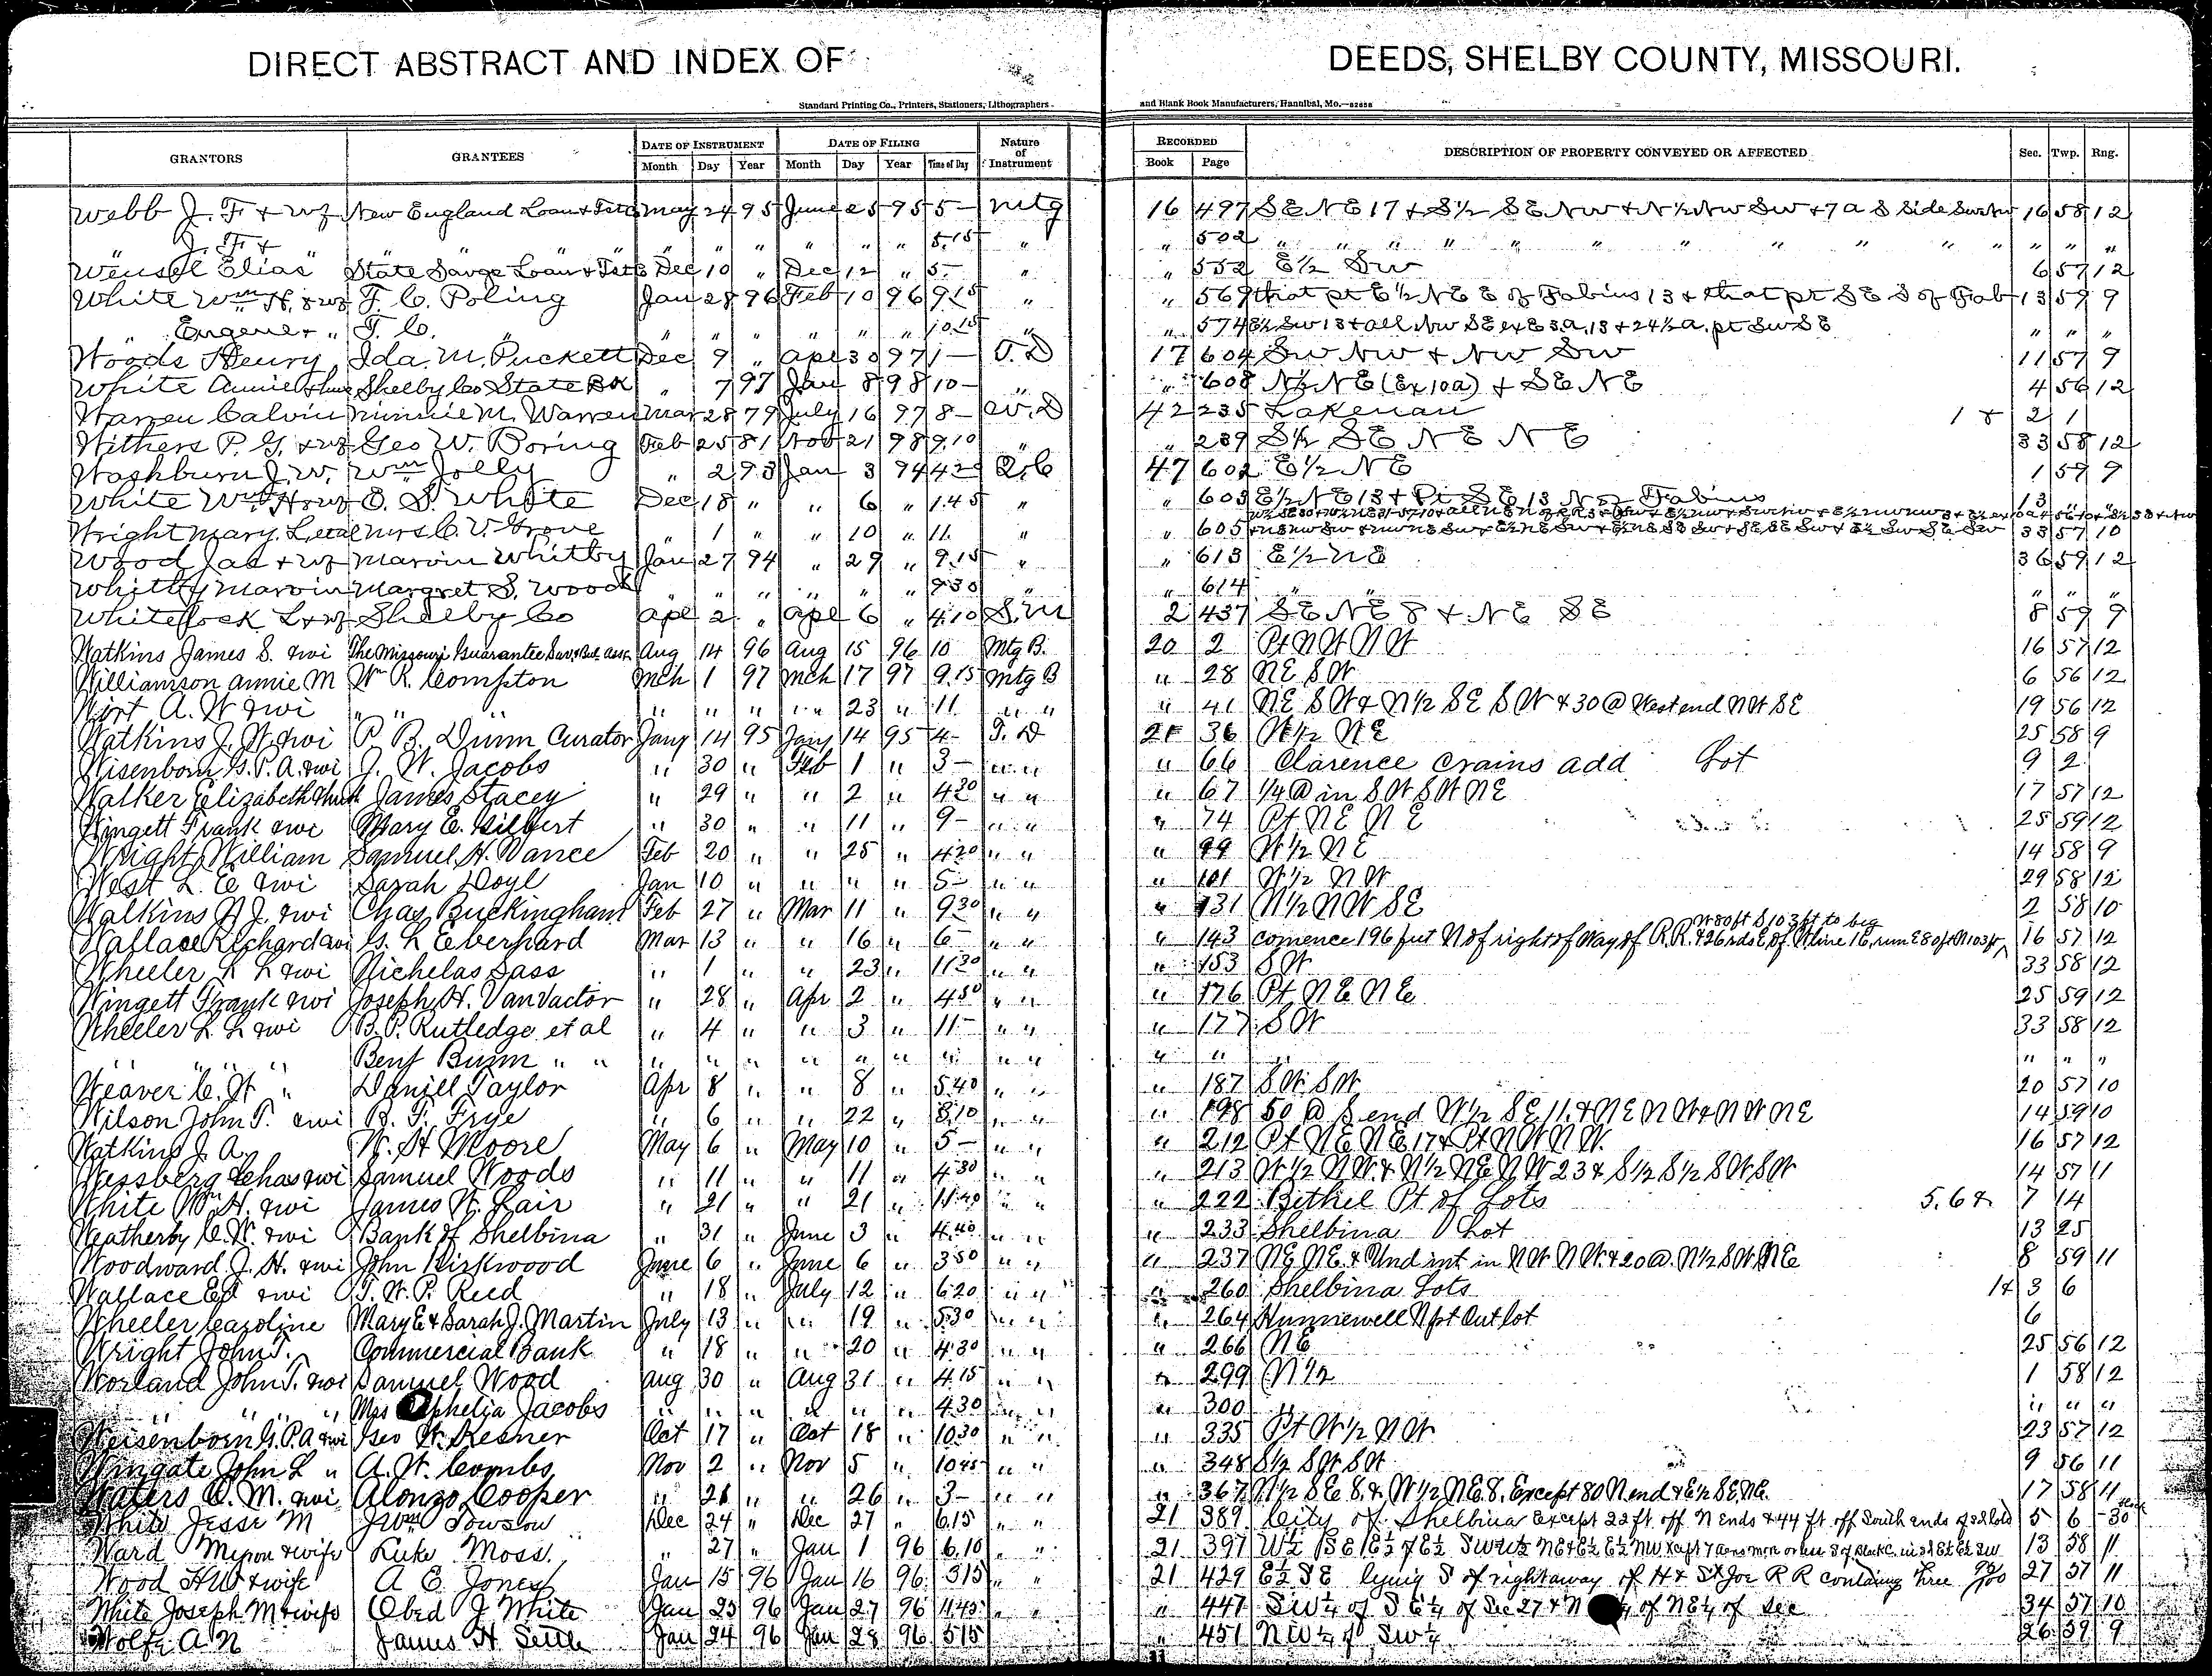 DIRECT ABSTRACT AND INDEX OF DEEDS, SHELBY COUNTY, MISSOURI.
Standard Printing Co., Printers, Stationers, Lithographers and Blank Book Manufacturers, Hannibal, Mo.
GRANTORS GRANTEES DATE OF INSTRUMENT DATE OF FILING Nature of Instrument RECORDED DESCRIPTION OF PROPERTY CONVEYED OR AFFECTED Sec. Twp. Rng.
Month Day Year Month Day Year Time of Day Book Page
Webb J. F + wf New England Loan + Tst Co May 24 95 June 25 95 5- Mtg 16 497 SE NE 17 + S½ SE NW + N½ NW SW + 7a S Side SW NW 16 58 12
" J. F + " " " " " " " " " " " 5.15 " " 502 " " " " " " " " " " " "
Wensel Elias State Savgs Loan + Tst Co Dec 10 " Dec 12 " 5- " " 552 E½ SW 6 57 12
White Wm H. + wf F. C. Poling Jan 28 96 Feb 10 96 9.15 " " 569 that pt E½ NE E of Fabius 13 + that pt SE S of Fab 13 59 9
" Eugene + " F. C. " " " " " " " 10.15 " " 574 E½ SW 13 + all NW SE ex E 3a. 13 + 24½ a. pt SW SE " " "
Woods Henry Ida M. Puckett Dec 9 " Apl 30 97 1- T. D 17 604 SW NW + NW SW 11 57 9
White Annie + hus Shelby Co State Bk " 7 97 Jan 8 98 10- " " 608 N½ NE (Ex 10a) + SE NE 4 56 12
Warren Calvin Minnie M. Warren Mar 28 79 July 16 97 8- W. D 42 235 Lakenan 1 & 2 1
Withers P. G. + wf Geo W. Boring Feb 25 81 Nov 21 98 9.10 " " 239 S½ SE NE NE 33 58 12
Washburn J. W. Wm Jolly " 2 93 Jan 3 94 4.20 Q.C 47 602 E½ NE 1 59 9
White Wm H + wf O. S. White Dec 18 " " 6 " 1.45 " " 603 E½ NE 13 + Pt SE 13 N of Fabius 13 " "
Wright Mary L. et al Mrs C. V. Grove " 1 " " 10 " 11. " " 605 33 57 10
Wood Jas + wf Marvin Whitby Jan 27 94 " 29 " 9.15 " " 613 E½ NE 36 59 12
Whitby Marvin Margret S. Wood " " " " " " 9.30 " " 614 " " " " "
Whitelock L + wf Shelby Co Apl 2 " Apl 6 " 4.10 S. M 2 437 SE NE 8 + NE SE 8 59 9
Watkins James S. & wi The Missouri Guarantee Sav. & Bld. Assn. Aug 14 96 Aug 15 96 10 Mtg B. 20 2 Pt NW NW 16 57 12
Williamson Annie M Wm R. Compton Mch 1 97 Mch 17 97 9.15 Mtg B " 28 NE SW 6 56 12
Wirt A. W & wi " " " " " " " 23 " 11 " " " 41 NE SW & N½ SE SW & 30 @ West end NW SE 19 56 12
Watkins J. W. & wi P. B. Dunn Curator Jany 14 95 Jany 14 95 4- T. D 21 36 W½ NE 25 58 9
Wisenborn G. P. A. & wi J. W. Jacobs " 30 " Feb 1 " 3- " " " 66 Clarence Crains add Lot 9 2
Walker Elizabeth & husb James Stacey " 29 " " 2 " 4 20 " " " 67 ¼ @ in SW SW NE 17 57 12
Wingett Frank & wi Mary E. Gilbert " 30 " " 11 " 9- " " " 74 Pt NE NE 25 59 12
Wright William Samuel H. Vance Feb 20 " " 25 " 4 20 " " " 99 W½ NE 14 58 9
West L. E & wi Sarah Doyl Jan 10 " " " " 5- " " " 101 W½ NW 29 58 12
Watkins N J. & wi Chas Buckingham Feb 27 " Mar 11 " 9 30 " " " 131 N½ NW SE 2 58 10
Wallace Richard & wi G. L Eberhard Mar 13 " " 16 " 6- " " " 143 comence 196 feet N of right of Way of R.R. & 26 rds E of W line 16, run E 80 ft N 103 ft W 80 ft S 103 ft to beg 16 57 12
Wheeler L L & wi Nicholas Sass " 1 " " 23 " 11 30 " " " 153 SW 33 58 12
Wingett Frank & wi Joseph H. VanVactor " 28 " Apr 2 " 4 50 " " " 176 Pt NE NE 25 59 12
Wheeler L L & wi B. P. Rutledge et al " 4 " " 3 " 11- " " " 177 SW 33 58 12
" " " " Benj Bunn " " " " " " " " " " " " " " " "
Weaver C. W " Daniel Taylor Apr 8 " " 8 " 5.40 " " " 187 SW SW 20 57 10
Wilson John T. & wi B. F. Frye " 6 " " 22 " 8.10 " " " 198 50 @ S end W½ SE 11. & NE NW & NW NE 14 59 10
Watkins J. A. W. H Moore May 6 " May 10 " 5- " " " 212 Pt NE NE 17 & Pt NW NW. 16 57 12
Wessberg Chas & wi Samuel Woods " 11 " " 11 " 4 30 " " " 213 W½ NW. & N½ NE NW 23 & S½ S½ SW SW 14 57 11
White Wm H. & wi James W. Lair " 21 " " 21 " 11.40 " " " 222 Bethel Pt of Lots 5. 6 & 7 14
Weatherby C. W. & wi Bank of Shelbina " 31 " June 3 " 4.40 " " " 233 Shelbina Lot 13 25
Woodward J. H. & wi John Kirkwood June 6 " June 6 " 3 50 " " " 237 NE NE. & Und int in NW NW. & 20 @. N½ SW NE 8 59 11
Wallace Ed & wi T. W. P. Reed " 18 " July 12 " 6 20 " " " 260 Shelbina Lots 1 & 3 6
Wheeler Caroline Mary E & Sarah J. Martin July 13 " " 19 " 5.30 " " " 264 Hunnewell N pt Out lot 6
Wright John T. Commercial Bank " 18 " " 20 " 4.30 " " " 266 NE 25 56 12
Worland John T. & wi Samuel Wood Aug 30 " Aug 31 " 4.15 " " " 299 N½ 1 58 12
" " " " Mrs Ophelia Jacobs " " " " " " 4.30 " " " 300 " " " "
Weisenborn G. P. A & wi Geo W. Kesner Oct 17 " Oct 18 " 10 30 " " " 335 Pt W½ NW. 23 57 12
Wingate John L " A. W. Combs Nov 2 " Nov 5 " 10 45 " " " 348 S½ SW SW 9 56 11
Waters O. M. & wi Alonzo Cooper " 26 " " 26 " 3- " " " 367 N½ SE 8. & W½ NE 8. Except 80 N end & E½ SE NE. 17 58 11
White Jesse M Jno Towson Dec 24 " Dec 27 " 6.15 " " 21 389 City of Shelbina Except 22 ft. off N ends & 44 ft. off South ends of sd lots 5 6 30
Ward Myron & wife Luke Moss. " 27 " Jan 1 96 6.10 " " 21 397 13 58 11
Wood H W & wife A E. Jones Jan 15 96 Jan 16 96 3 15 " " 21 429 E½ SE lying S of right away of H & St Joe R R containg Three 27 57 11
White Joseph M & wife Obed J White Jan 23 96 Jan 27 96 11.45 " " " 447 SW¼ of SE¼ of Sec 27 & N of NE¼ of Sec 34 57 10
Wolfe A N James H Settle Jan 24 96 Jan 28 96 5 15 " " " 451 NW¼ of SW¼ 26 59 9